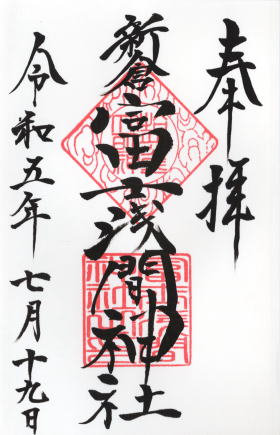 奉拝
新倉富士浅間神社
令和五年七月十九日